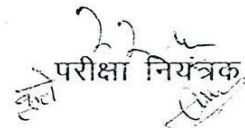 कृते परीक्षा नियंत्रक